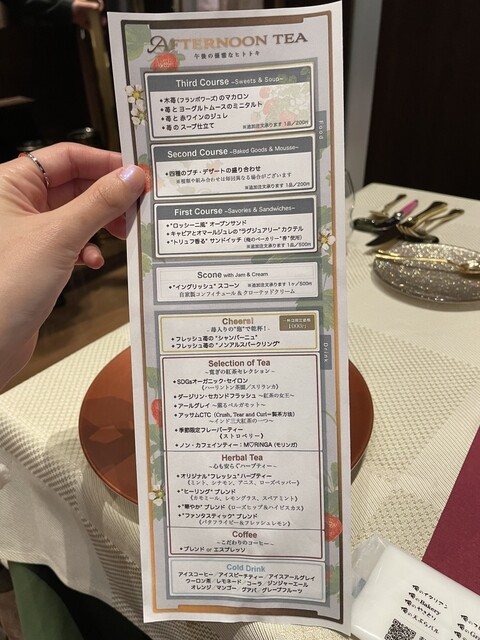 AFTERNOON TEA
午後の優雅なヒトトキ
Third Course ~Sweets & Soup~
・木苺(フランボワーズ)のマカロン
・苺とヨーグルトムースのミニタルト
・苺と赤ワインのジュレ
・苺のスープ仕立て
※追加注文承ります 1品/200円
Food
Second Course ~Baked Goods & Mousse~
・四種のプチ・デザートの盛り合わせ
※種類や組み合わせは毎回異なる場合がございます
※追加注文承ります 1品/200円
First Course ~Savories & Sandwiches~
・"ロッシーニ風" オープンサンド
・キャビアとオマールジュレの"ラグジュアリー" カクテル
・"トリュフ香る" サンドイッチ (俺のベーカリー"香"使用)
※追加注文承ります 1品/500円
Scone with Jam & Cream
・"イングリッシュ" スコーン ※追加注文承ります 1ヶ/500円
自家製コンフィチュール & クローテッドクリーム
Cheers!
~苺入りの"泡"で乾杯!~
1000円
・フレッシュ苺の "シャンパーニュ"
・フレッシュ苺の "ノンアルスパークリング"
Drink
Selection of Tea
~寛ぎの紅茶セレクション~
・SDGsオーガニック・セイロン
(ハーリントン茶園/スリランカ)
・ダージリン・セカンドフラッシュ ~紅茶の女王~
・アールグレイ ~薫るベルガモット~
・アッサムCTC (Crush, Tear and Curl=製茶方法)
~インド三大紅茶の一つ~
・季節限定フレーバーティー
《ストロベリー》
・ノン・カフェインティー:M♡RINGA (モリンガ)
Herbal Tea
~心も安らぐハーブティー~
・オリジナル"フレッシュ" ハーブティー
(ミント、シナモン、アニス、ローズペッパー)
・"ヒーリング" ブレンド
(カモミール、レモングラス、スペアミント)
・"華やか" ブレンド (ローズヒップ&ハイビスカス)
・"ファンタスティック" ブレンド
(バタフライピー&フレッシュレモン)
Coffee
~こだわりのコーヒー~
・ブレンド or エスプレッソ
Cold Drink
アイスコーヒー / アイスピーチティー / アイスアールグレイ
ウーロン茶 / レモネード / コーラ / ジンジャーエール
オレンジ / マンゴー / グァバ / グレープフルーツ
俺のイタリアン
俺のBakery